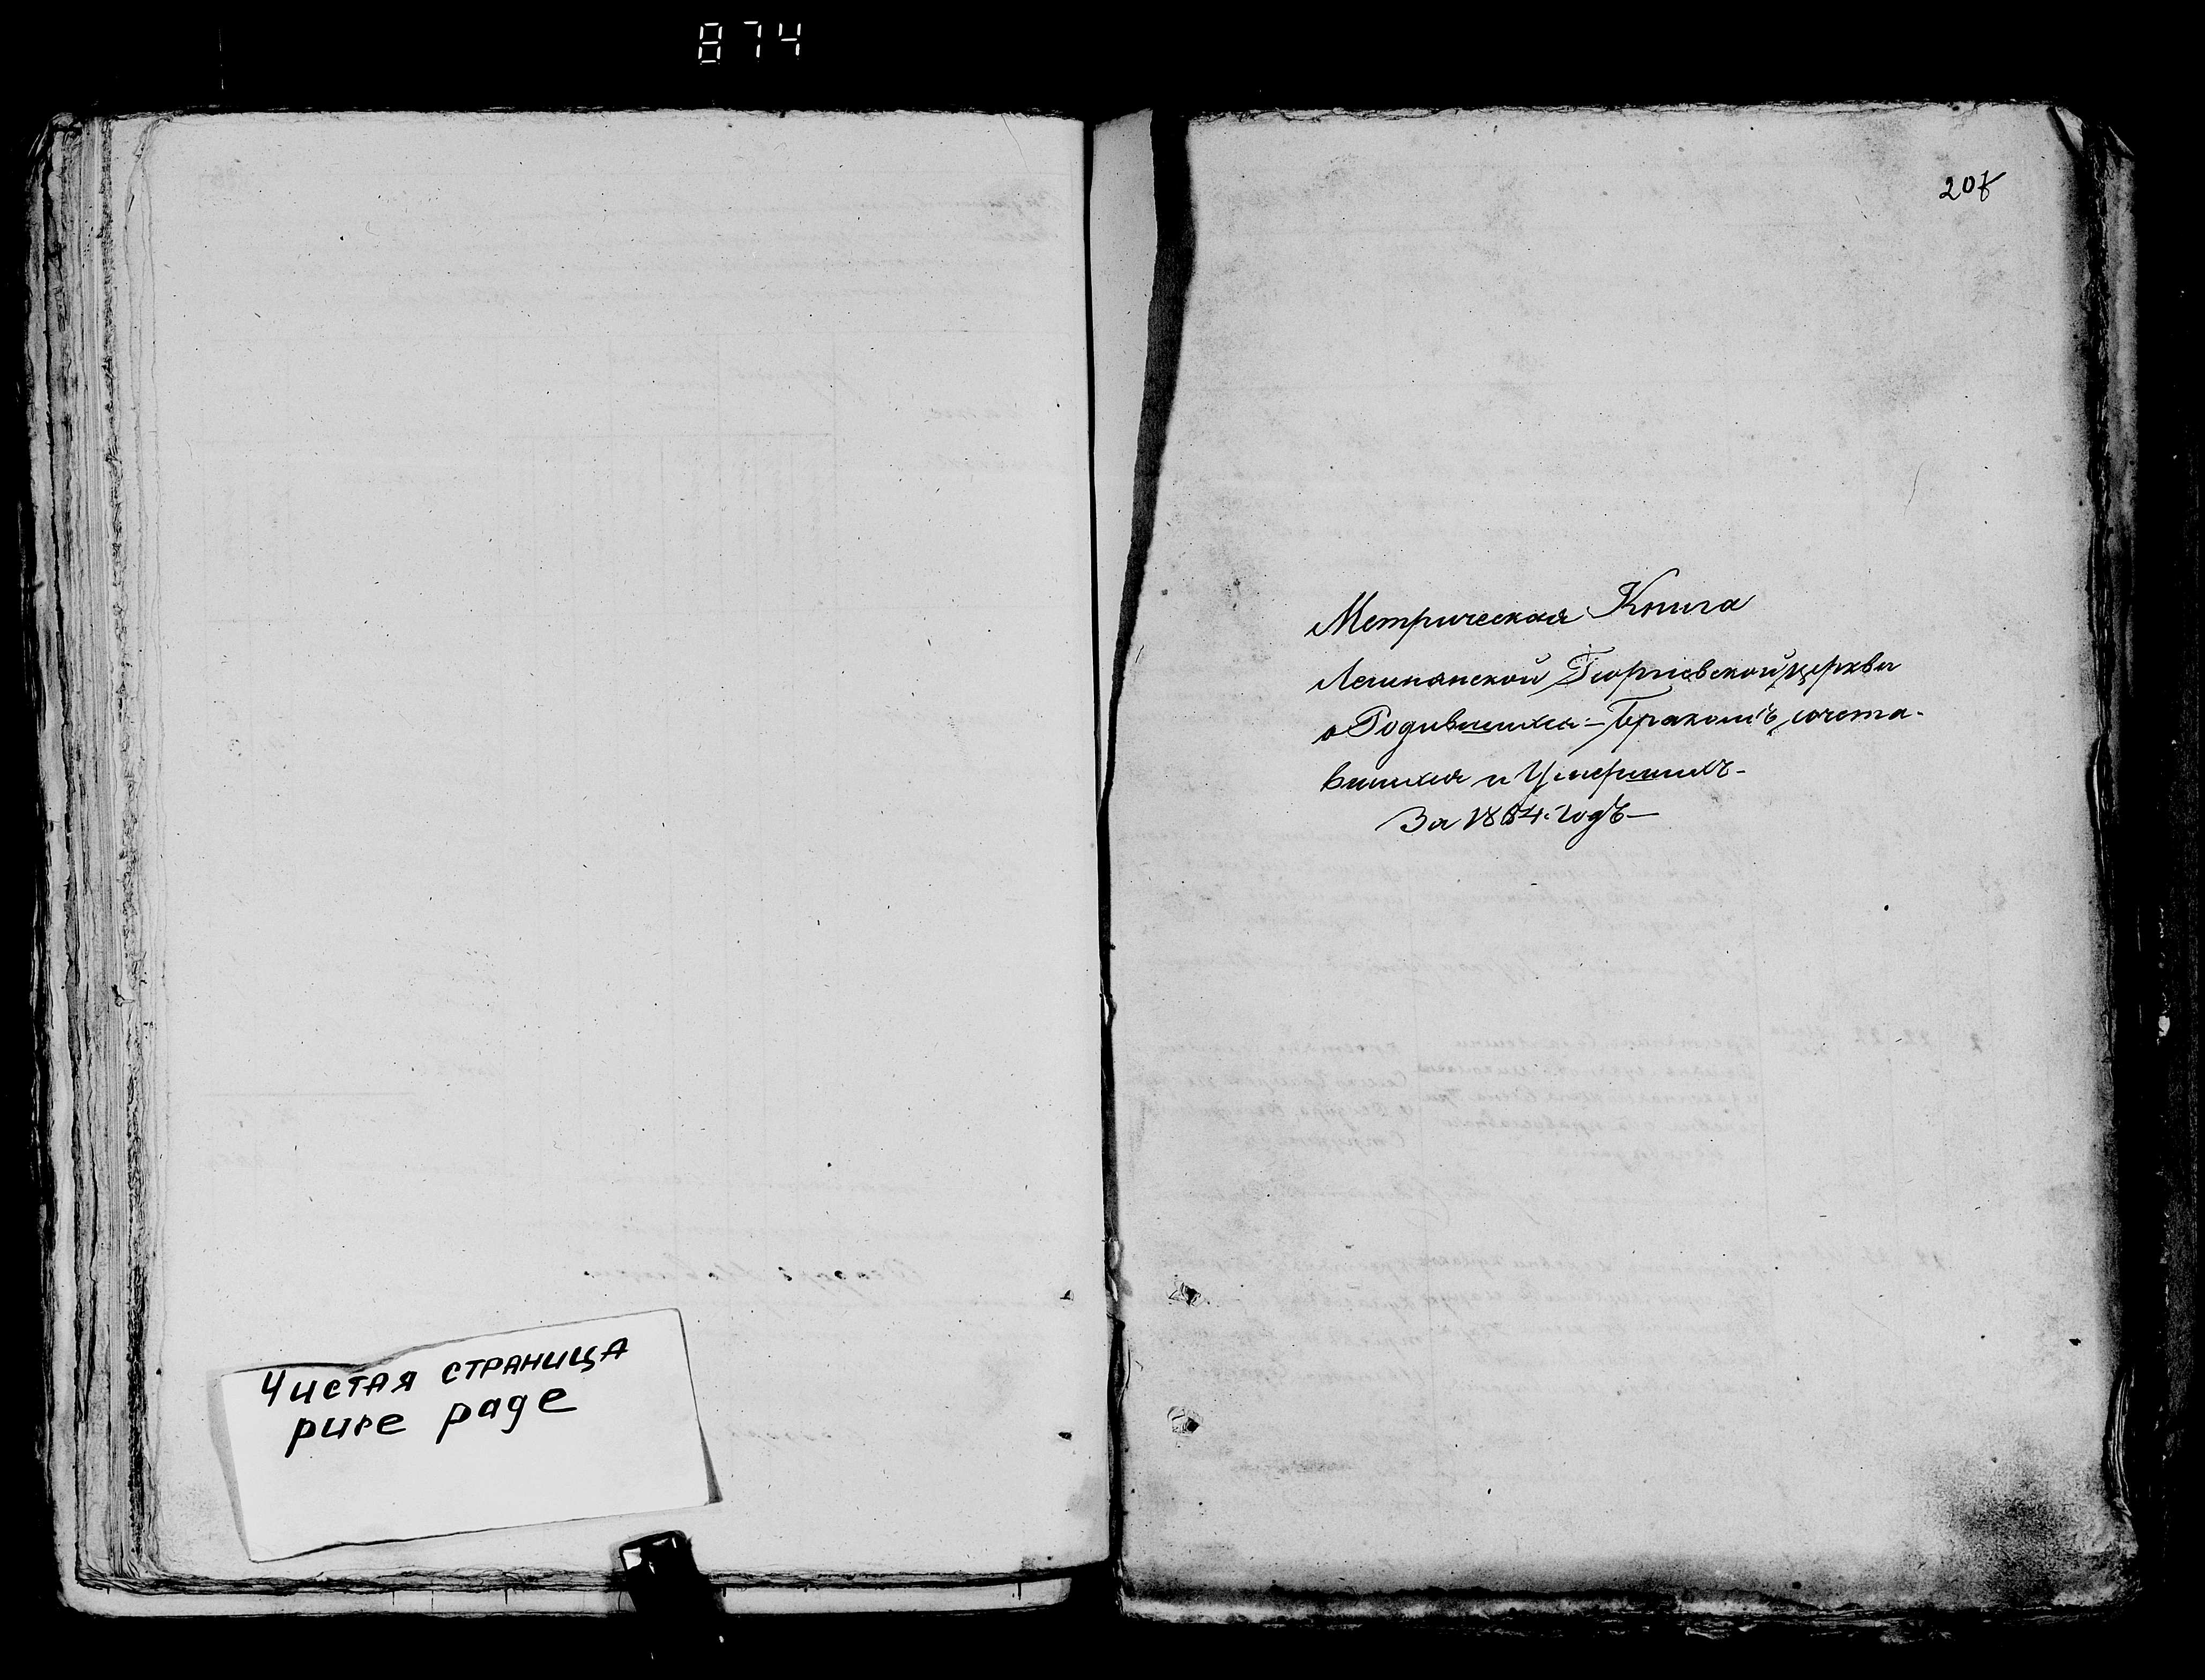 874
Чистая страница
pure page
207
Метрическая Книга
Георгиевской церкви
о Родившихся - Бракомъ соста-
вшихся и Умершихъ -
За 1884 годъ -